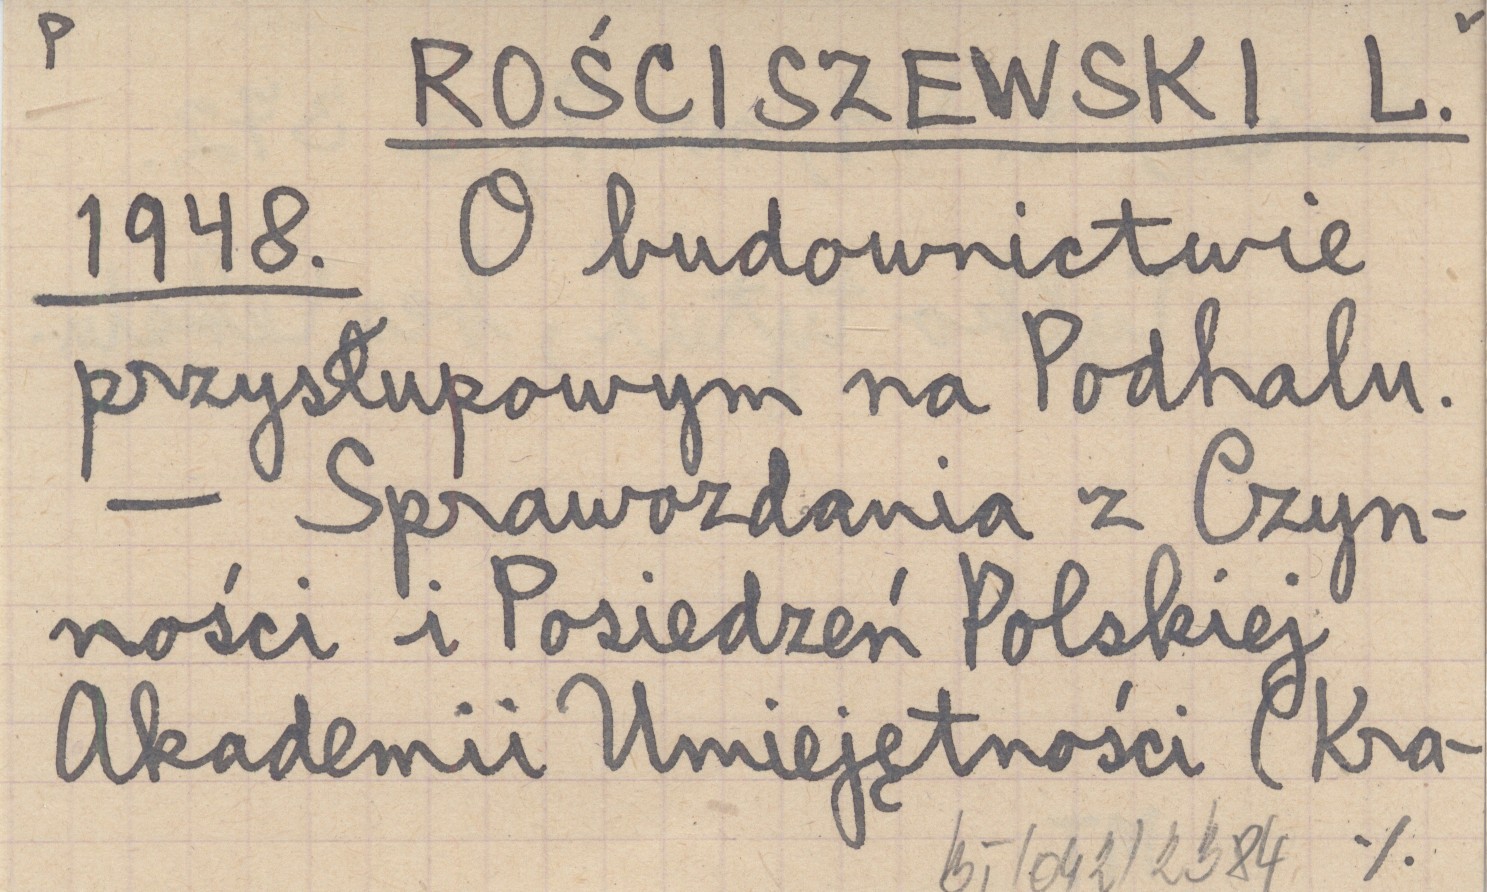 P
ROŚCISZEWSKI L.
1948. O budownictwie
przysłupowym na Podhalu.
— Sprawozdania z Czyn-
ności i Posiedzeń Polskiej
Akademii Umiejętności (Kra-
./.